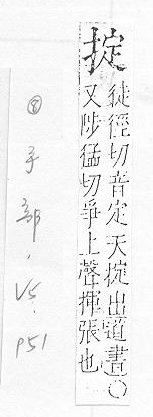 掟
徒徑切音定天掟出道書○
又陟猛切爭上聲揮張也
手部,V5.
P51